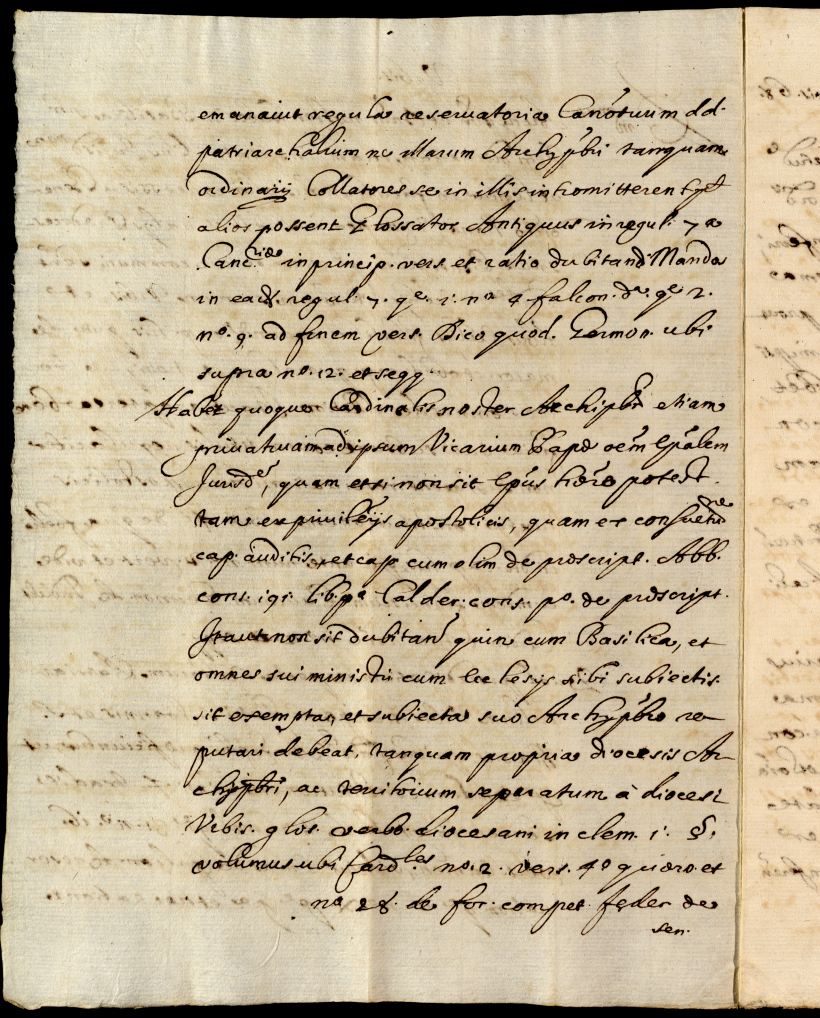 emanavit regula reservatoria Canõtuum dd.
patriarchalium ne illarum Archypb̃ri tanquam
ordinarij Collatores se in illis intromitterent
alios possent Glossator Antiquus in regul. 7 a
Canc.riæ in princip. vers. et ratio dubitand Mando
in ead. regul. 7. q.e 1. n.o 4 falcon. d.a q.e 2.
n.o 9. ad finem vers. Dico quod. Germon. ubi
supra n.o 12. et seqq.
Habet quoque Cardinalis noster Archipbr̃ etiam
privativam ad ipsum Vicarium Papæ oem̃ Ep̃alem
Jurisd.e, quam etsi non sit Ep̃us hẽre potest
tam ex privileijs apostolicis, quam ex consuetudne
cap. auditis, et cap. cum olim de præscript. Abb.
cons. 191. lib. p.a Calder. cons. p.o de præscript.
Ita ut non sit dubitan̄ quin cum Basilica, et
omnes sui ministri cum Ecclesijs sibi subiectis
sit exempta, et subiecta suo Archypb̃ro re
putari debeat, tanquam propria diocesis Ar
chypb̃ri, ac territorium separatum à diocesi
Vrbis. glos. verbo diocesani in clem. 1. §.
volumus ubi Card.les n.o 2. vers. 4.o quæro et
n.o 28. de for. compet. feder. de
sen.